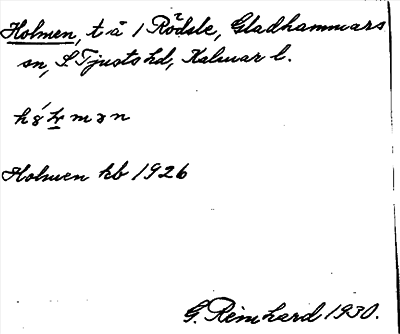 Holmen, t å 1 Rödsle, Gladhammars
sn, S Tjusts hd, Kalmar l.
Holmen kb 1926
G. Reinhard 1930.